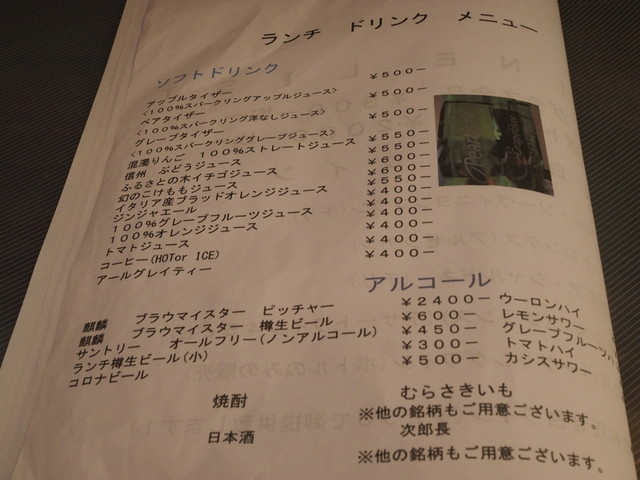 ランチ ドリンク メニュー
ソフトドリンク
アップルタイザー ￥500－
<100%スパークリングアップルジュース>
ペアタイザー ￥500－
<100%スパークリング洋なしジュース>
グレープタイザー ￥500－
<100%スパークリンググレープジュース>
混濁りんご 100%ストレートジュース ￥550－
信州 ぶどうジュース ￥550－
ふるさとの木イチゴジュース ￥600－
幻のこけももジュース ￥600－
イタリア産ブラッドオレンジジュース ￥550－
ジンジャエール ￥400－
100%グレープフルーツジュース ￥400－
100%オレンジジュース ￥400－
トマトジュース ￥400－
コーヒー(HOTor ICE) ￥400－
アールグレイティー ￥400－
アルコール
麒麟 ブラウマイスター ピッチャー ￥2400－ ウーロンハイ
麒麟 ブラウマイスター 樽生ビール ￥600－ レモンサワー
サントリー オールフリー(ノンアルコール) ￥450－ グレープフルーツハ
ランチ樽生ビール(小) ￥300－ トマトハイ
コロナビール ￥500－ カシスサワー
焼酎 むらさきいも
※他の銘柄もご用意ございます。
日本酒 次郎長
※他の銘柄もご用意ございます。